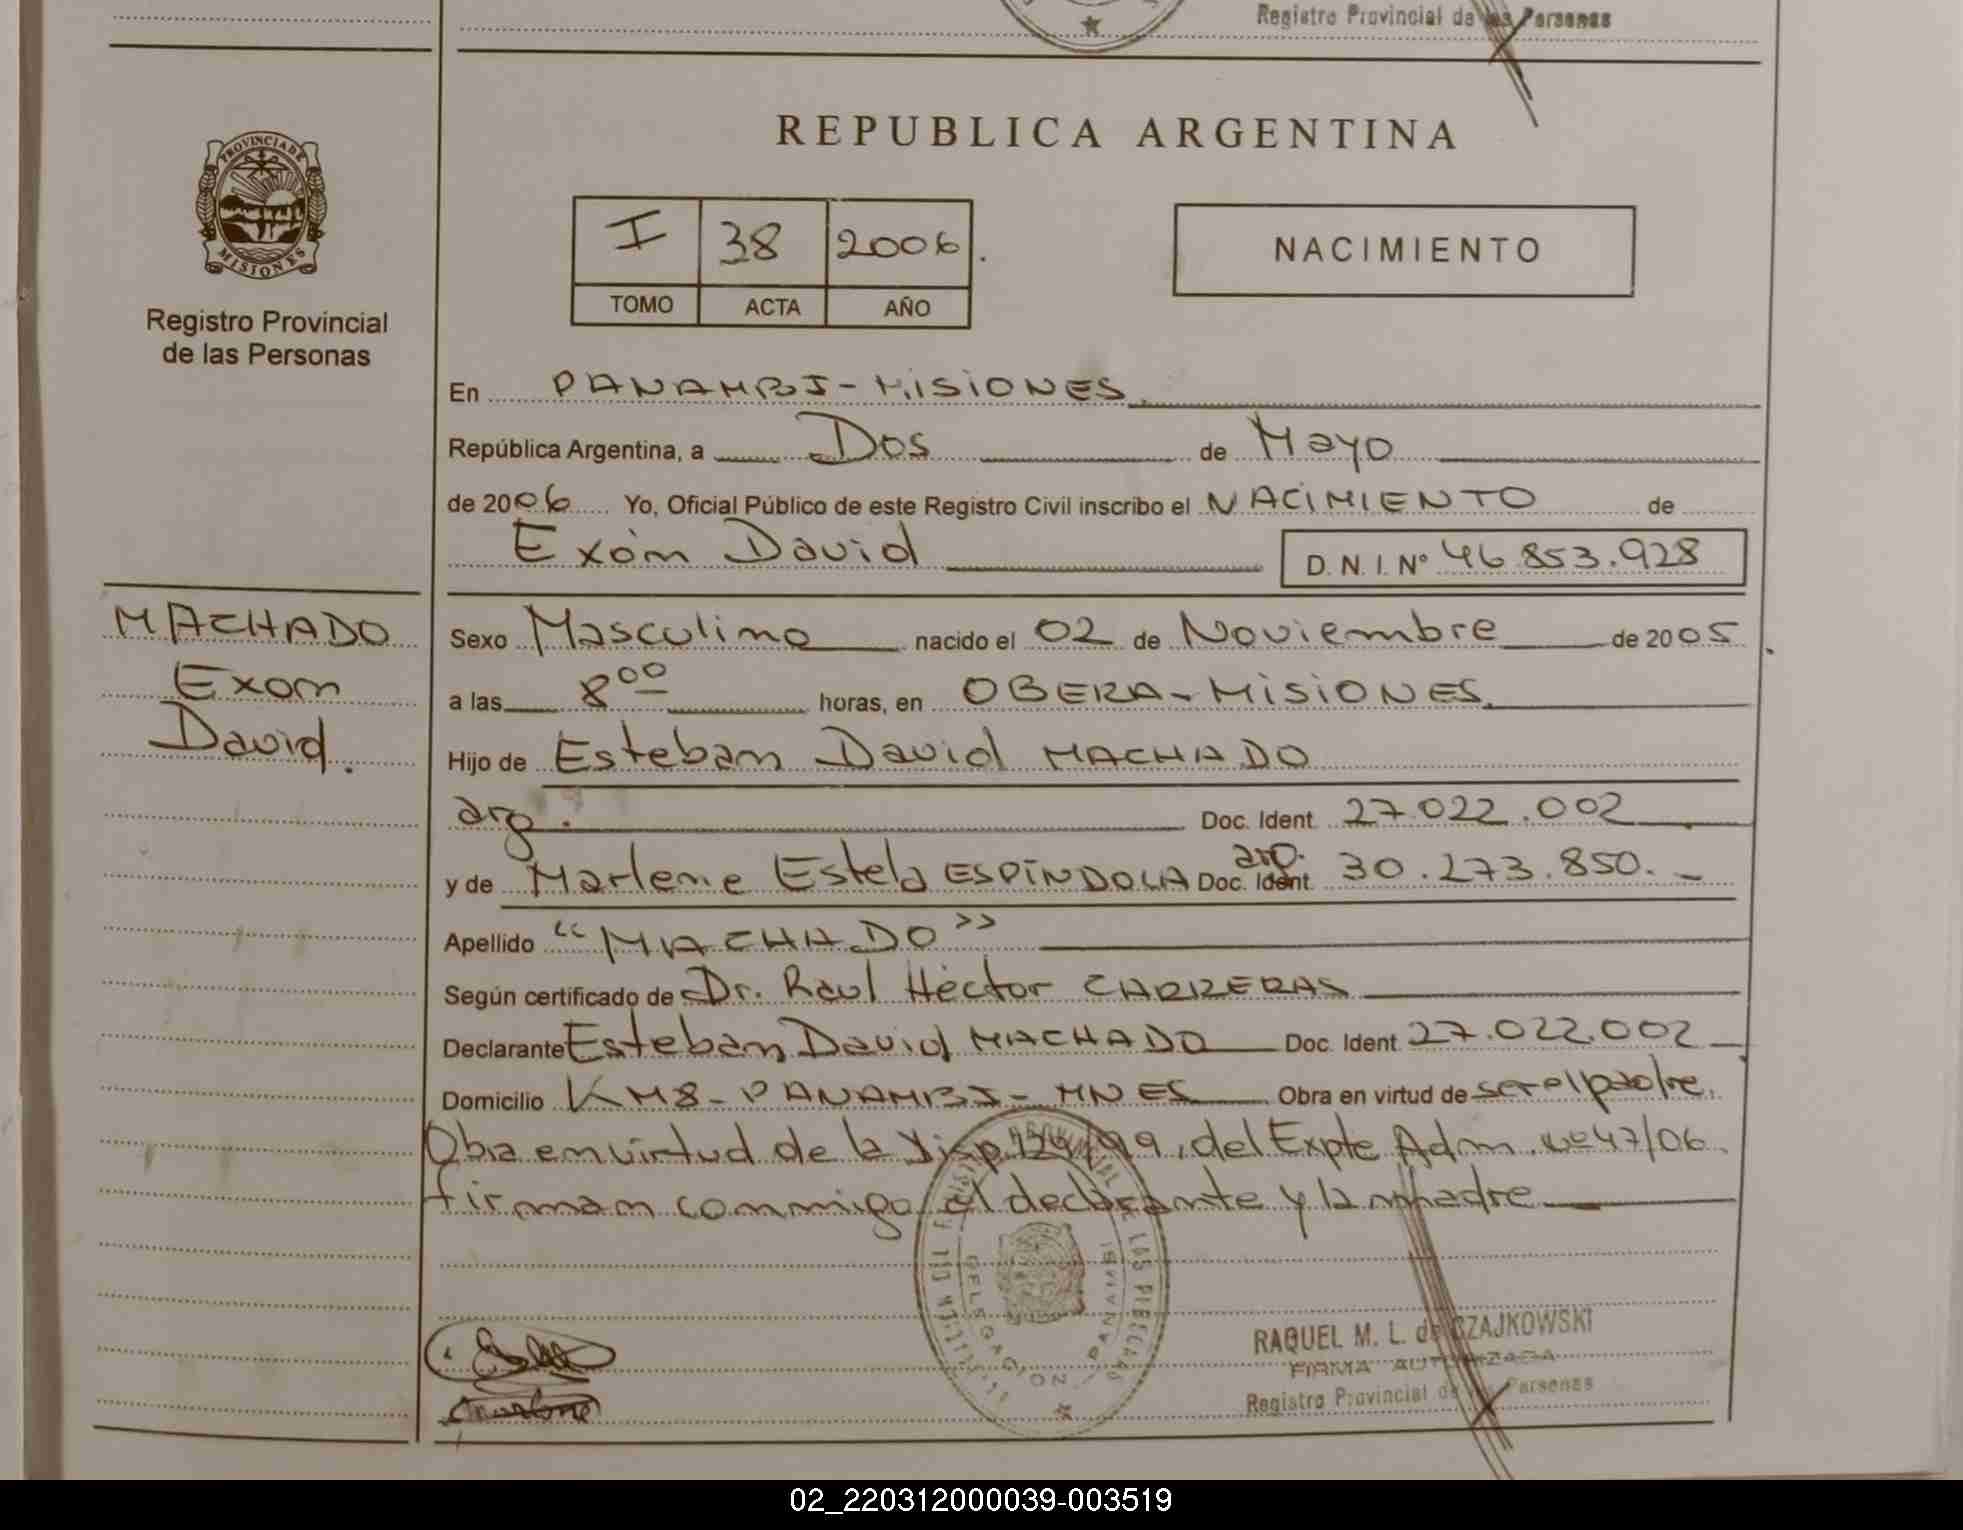 Registro Provincial de las Personas
REPUBLICA ARGENTINA
PROVINCIA DE
MISIONES
Registro Provincial
de las Personas
I 38 2006.
TOMO ACTA AÑO
NACIMIENTO
En PANAMBI-MISIONES
República Argentina, a Dos de Mayo
de 2006 Yo, Oficial Público de este Registro Civil inscribo el NACIMIENTO de
Exom David
D. N. I. Nº 46.853.928
MACHADO
Exom
David.
Sexo Masculino nacido el 02 de Noviembre de 2005.
a las 8 00 horas, en OBERA-MISIONES
Hijo de Esteban David MACHADO
arg. Doc. Ident. 27.022.002
y de Marlene Estela ESPÍNDOLA arg. Doc. Ident. 30.273.850.-
Apellido “MACHADO”
Según certificado de Dr. Raul Héctor CARRERAS
Declarante Esteban David MACHADO Doc. Ident. 27.022.002
Domicilio KM8-PANAMBI-MNES Obra en virtud de ser el padre.
Obra en virtud de la Disp. /99, del Expte Adm. Nº 47/06.
firman conmigo el declarante y la madre
DELEGACION PANAMBI
RAQUEL M. L. de CZAJKOWSKI
FIRMA AUTORIZADA
Registro Provincial de las Personas
02_220312000039-003519